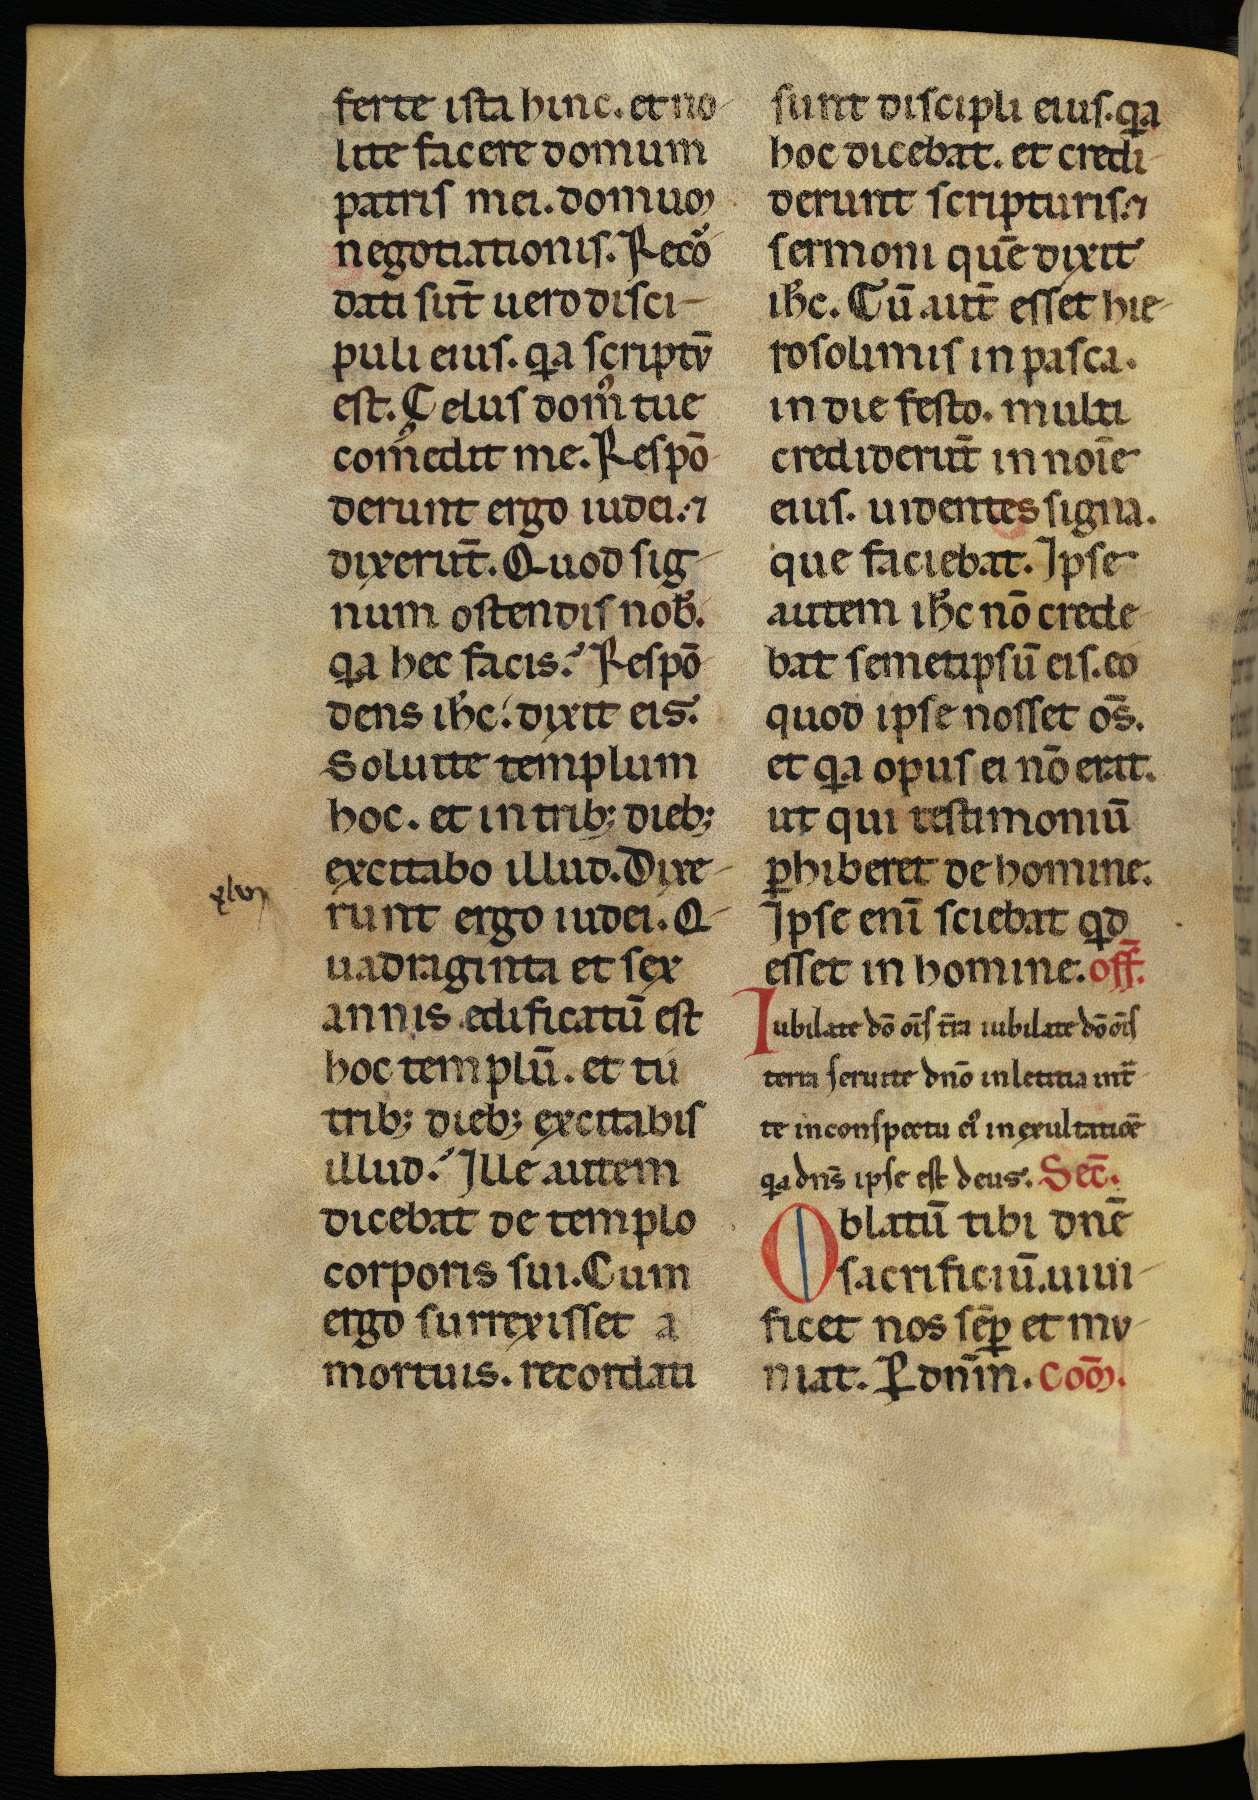 ferte ista hinc. et no-
lite facere domum
patris mei. domuꝫ
negotiationis. Recō
dati sūt̄ uero disci-
puli eius. qa scriptū
est. Celus dom̉ tue
com̄edit me. Respō-
derunt ergo iudei. ⁊
dixerūt. Quod sig-
num ostendis nob̄.
qa hec facis? Respō-
dens ih̄c. dixit eis.
Soluite templum
hoc. et in trib; dieb;
excitabo illud. Dixe-
runt ergo iudei. Q-
uadraginta et sex
annis edificatū est
hoc templū. et tu
trib; dieb; excitabis
illud? Ille autem
dicebat de templo
corporis sui. Cum
ergo surrexisset a
mortuis. recordati
sunt discipli eius. qa
hoc dicebat. et credi-
derunt scripturis. ⁊
sermoni quē dixit
ih̄c. Cū aut̄ esset hie-
rosolimis in pasca.
in die festo. multi
crediderūt in noīe
eius. uidentes signa.
que faciebat. Ipse
autem ih̄c nō crede-
bat semetipsū eis. eo
quod ipse nosset os̄.
et qa opus ei nō erat.
ut qui testimoniū
ꝑhiberet de homine.
Ipse enī sciebat qd
esset in homine. off̄.
Iubilate dō oīs t̄ra iubilate dō oīs
terra seruite dnō in letitia int̄-
te in conspectu ei᷒ in exultatiōe
qa dns̄ ipse est deus. Sec̄.
Oblatū tibi dnē
sacrificiū. uiui-
ficet nos sēꝑ et mu-
niat. Ꝑ dnm̄. Com̄.